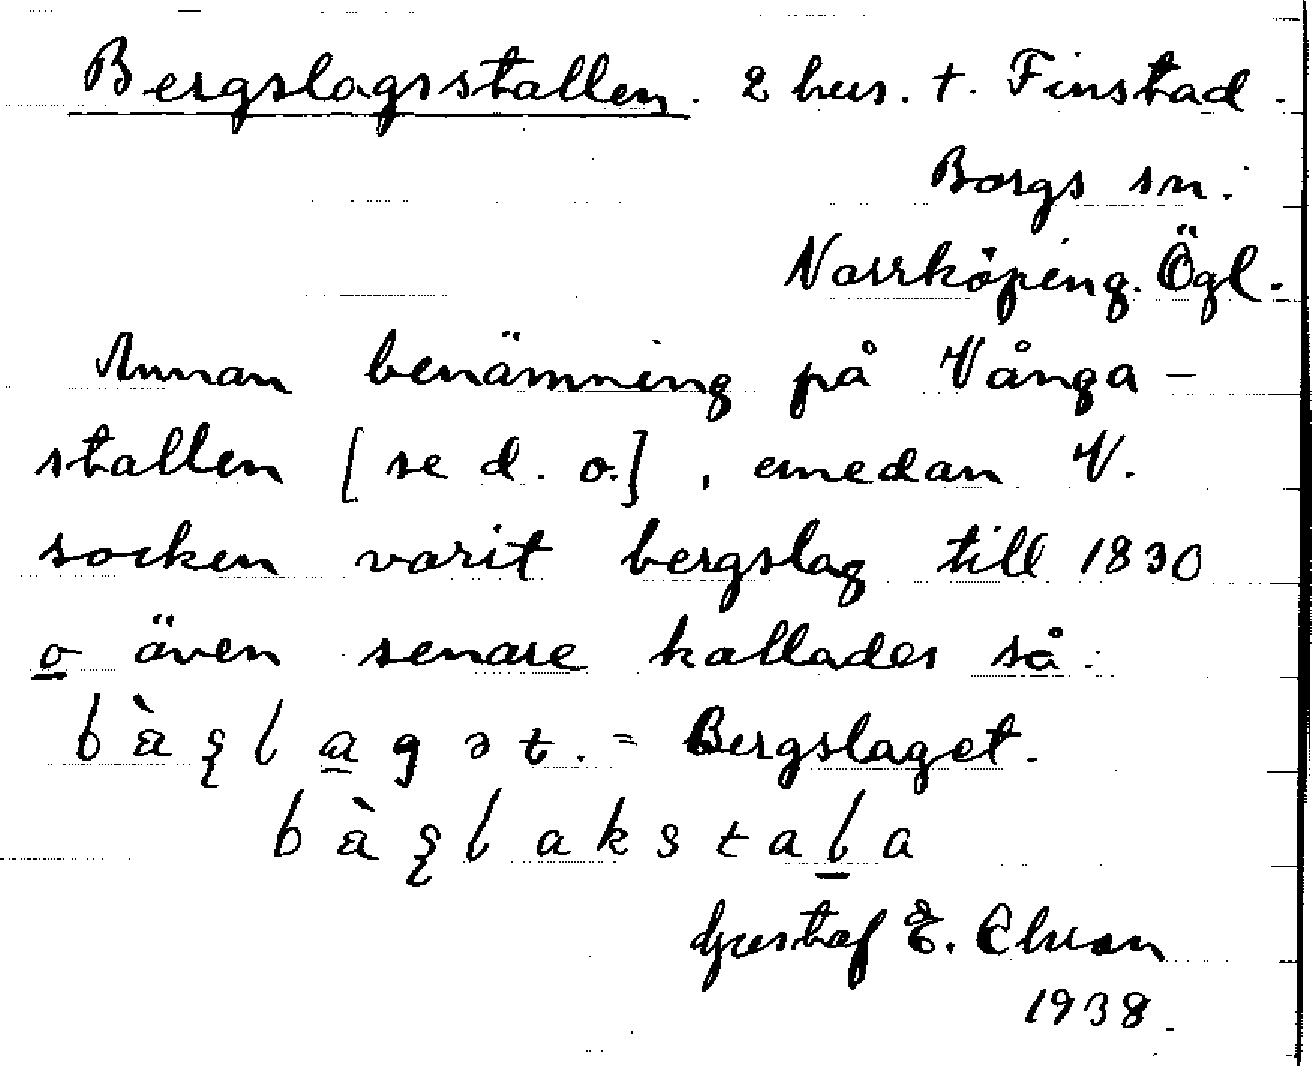 Bergslagsstallen. 2 hus. t. Finstad.
Borgs sn.
Norrköping. Ögl.
Annan benämning på Vånga-
stallen [se d. o.], emedan V.
socken varit bergslag till 1830
o även senare kallades så.
bàʂlagət. = Bergslaget.
bàʂlakstala
Gustaf E. Clvson
1938.